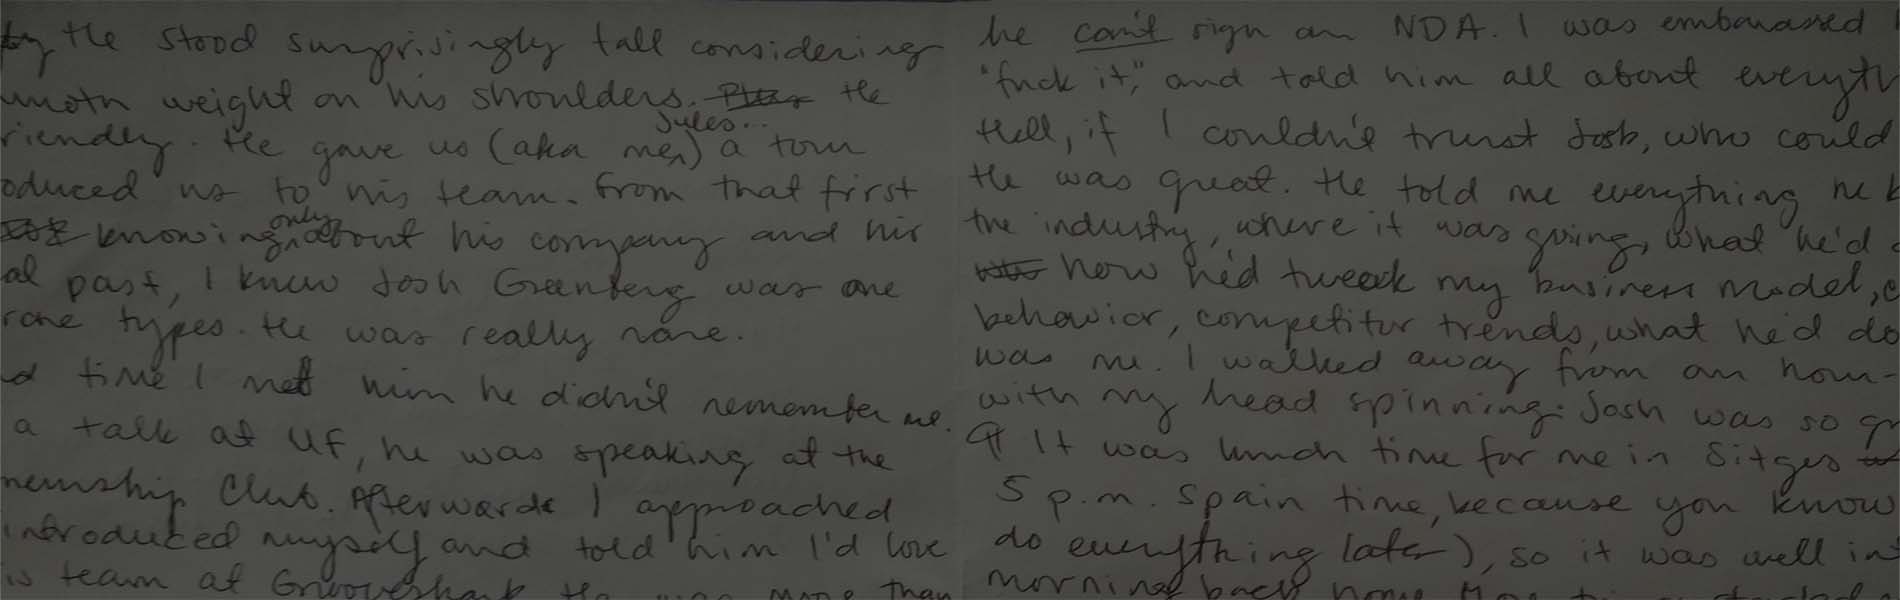 He stood surprisingly tall considering
weight on his shoulders. He
Jules..
riendly. He gave us (aka me,) a tour
oduced us to his team. From that first
only
knowing about his company and his
al past, I knew Josh Greenberg was one
rare types. He was really rare.
d time I met him he didn't remember me.
a talk at UF, he was speaking at the
neurship Club. Afterwards I approached
introduced myself and told him I'd love
is team at Grooveshark. He was more than
he can't sign an NDA. I was embarrassed
"fuck it," and told him all about everyth
Hell, if I couldn't trust Josh, who could
He was great. He told me everything he k
the industry, where it was going, what he'd
how he'd tweak my business model, c
behavior, competitor trends, what he'd do
was me. I walked away from an hour-
with my head spinning. Josh was so gr
¶ It was lunch time for me in Sitges
5 p.m. Spain time, because you know
do everything later), so it was well in
morning back home